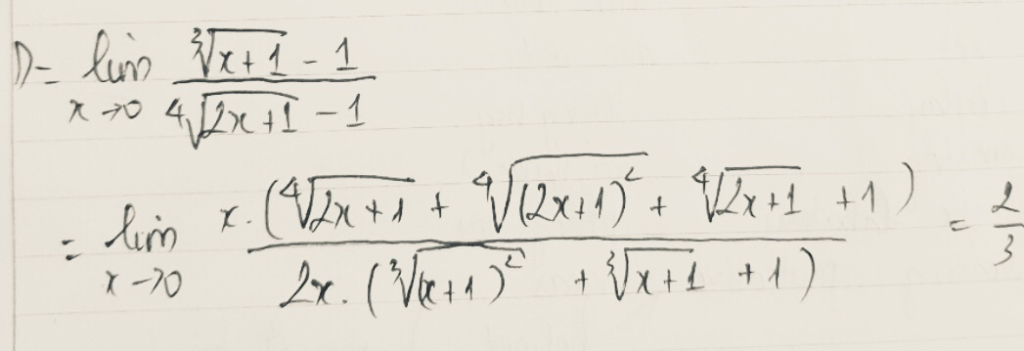 D = lim_{x→0} \frac{\sqrt[3]{x+1} - 1}{\sqrt[4]{2x+1} - 1}
= lim_{x→0} \frac{x.(\sqrt[4]{2x+1} + \sqrt[4]{(2x+1)^2} + \sqrt[4]{2x+1} + 1)}{2x.(\sqrt[3]{(x+1)^2} + \sqrt[3]{x+1} + 1)} = \frac{2}{3}